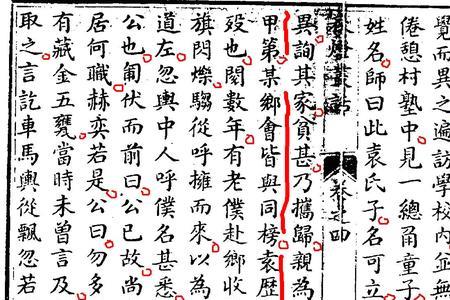 覺而異之遍訪學校內並無
倦憩村塾中見一總角童子
姓名師曰此袁氏子名可立
卷之四
異詢其家貧甚乃攜歸親為
甲第某鄉會皆與同榜袁歷
歿也閱數年有老僕赴鄉收
旗閃爍騶從呼擁而來以為
道左忽輿中人呼僕名甚悉
公也匍伏而前曰公已故尚
居何職赫奕若是公曰勿多
有藏金五甕當時未曾言及
取之言訖車馬輿從飄忽若